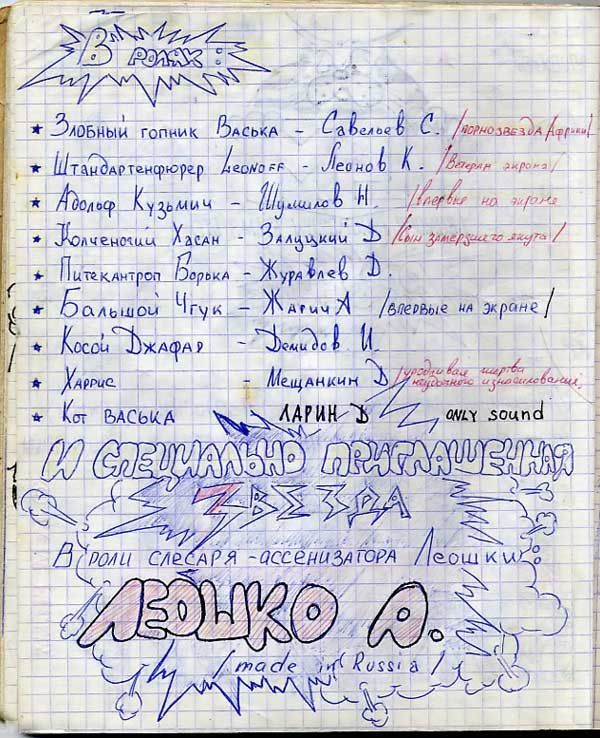 В ролях:
★ Злобный гопник Васька – Савельев С. /порнозвезда Африки/
★ Штандартенфюрер Leonoff – Леонов К. /Ветеран экрана/
★ Адольф Кузьмич – Шумилов Н. /впервые на экране
★ Колченогий Хасан – Залуцкий Д /сын замерзшего якута/
★ Питекантроп Борька – Журавлев Д.
★ Балышой Чгук – Жарич А /впервые на экране/
★ Косой Джафар – Демидов И.
★ Харрис – Мещанкин Д /уродливая жертва неудачного износилования/
★ Кот ВАСЬКА ЛАРИН D ONLY sound
И СПЕЦИАЛЬНО ПРИГЛАШЕННАЯ
ЗВЕЗДА
В роли слесаря-ассенизатора Леошки:
ЛЕОШКО А.
/made in Russia/